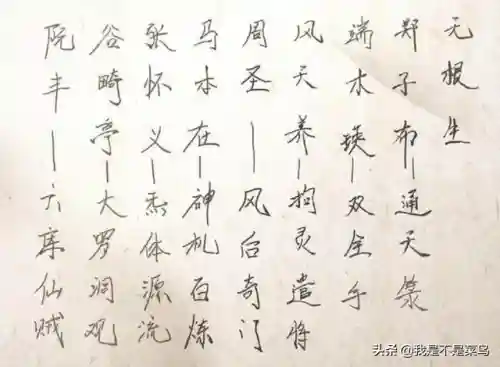 无根生
郑子布—通天箓
端木瑛—双全手
风天养—拘灵遣将
周圣—风后奇门
马本在—神机百炼
张怀义—炁体源流
谷畸亭—大罗洞观
阮丰—六库仙贼
头条 @我是不是菜鸟